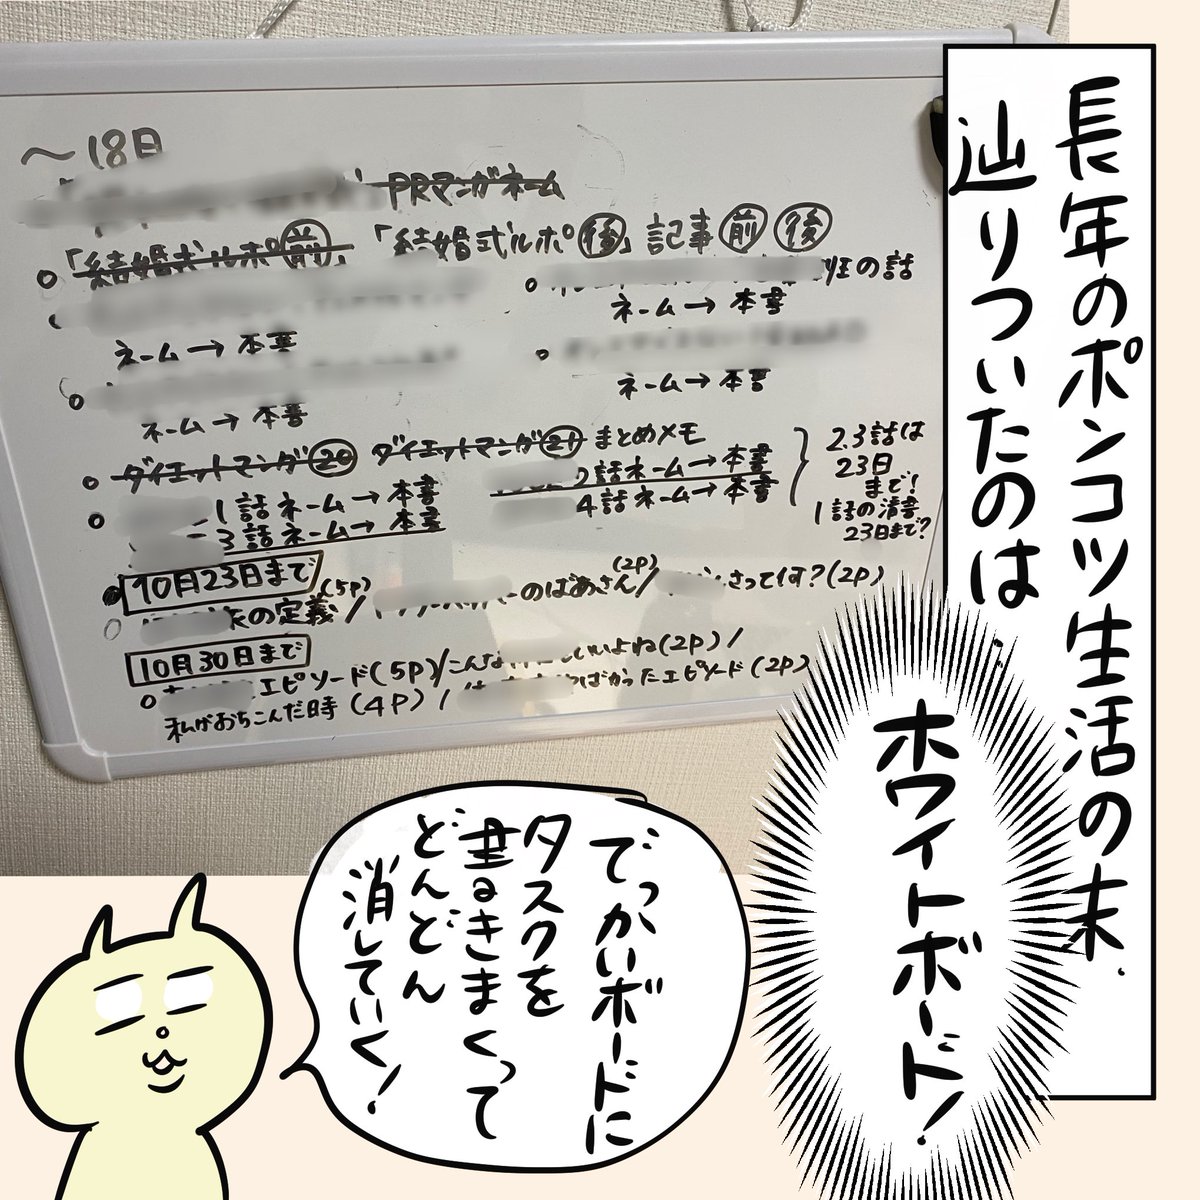 長年のポンコツ生活の末、
辿りついたのは…
ホワイトボード!
〜18日
PRマンガネーム
「結婚式ルポ前」「結婚式ルポ後」記事前後
班の話
ネーム→本書
ネーム→本書
ネーム→本書
ネーム→本書
ダイエットマンガ20 ダイエットマンガ21 まとめメモ
1話ネーム→本書
2話ネーム→本書
3話ネーム→本書
4話ネーム→本書
2.3話は
23日
まで!
1話の清書
23日まで?
10月23日まで
の定義(5P)/
のばあさん(2P)/
さって何?(2P)
10月30日まで
エピソード(5P)/こんな
いいよね(2P)/
私がおちこんだ時(4P)/
ばかったエピソード(2P)
でっかいボードに
タスクを
書きまくって
どんどん
消していく!